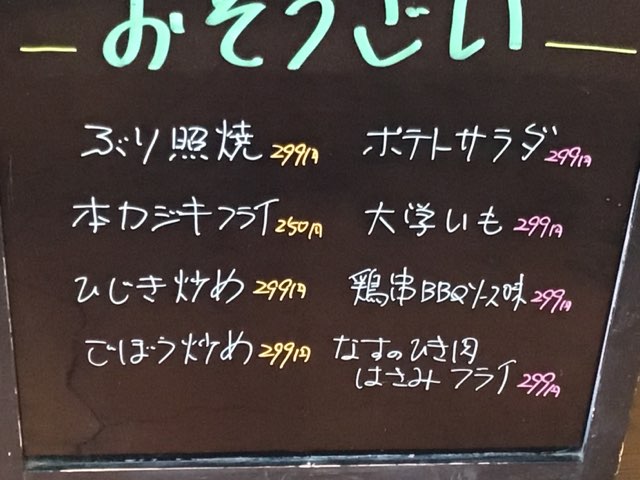 おそうざい
ぶり照焼 299円
本カジキフライ 250円
ひじき炒め 299円
ごぼう炒め 299円
ポテトサラダ 299円
大学いも 299円
鶏串BBQソース味 299円
なすのひき肉
はさみフライ 299円